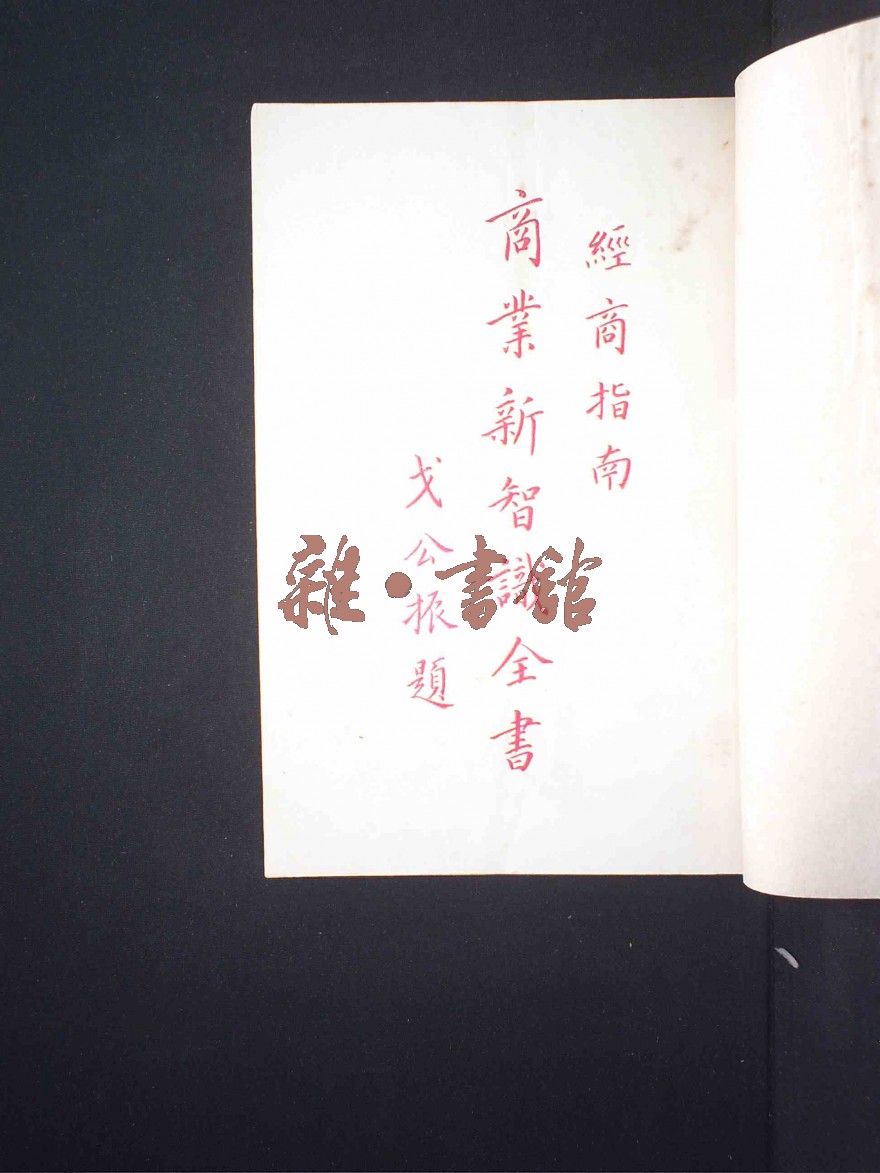 經商指南
商業新智識全書
戈公振題
雜·書館